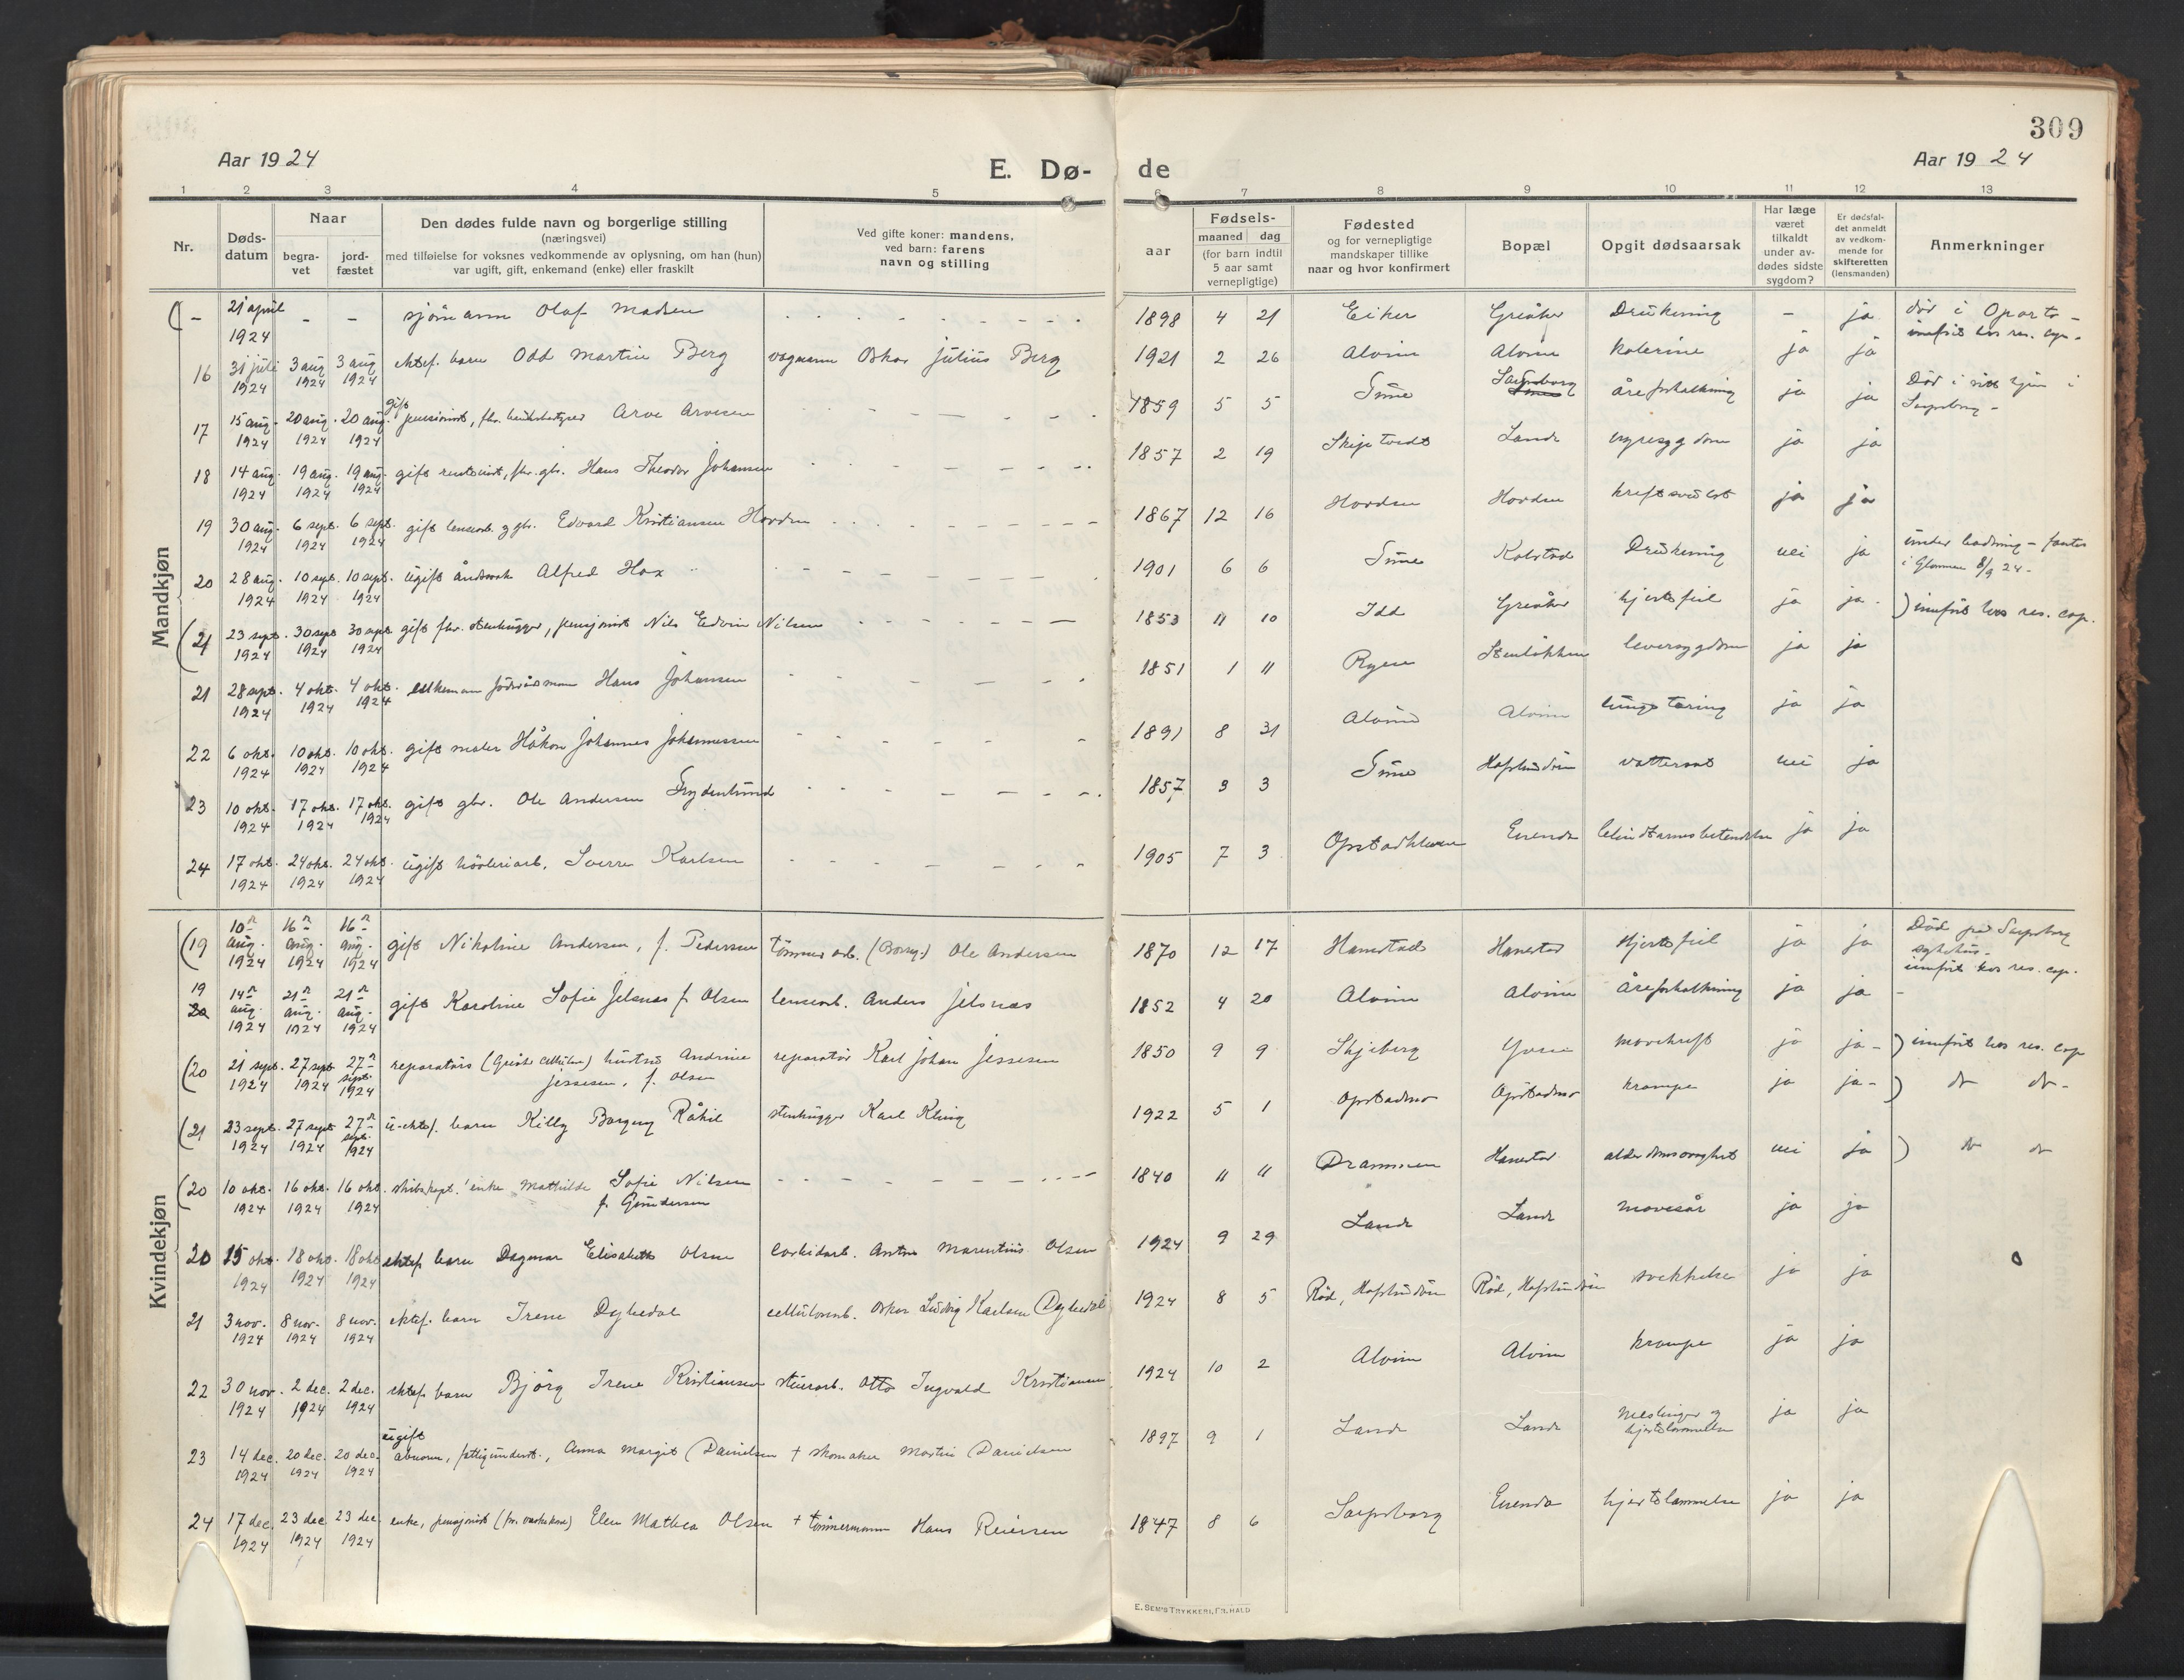 309
Aar 1924
E. Dø-
de
Aar 1924
1 2 3 4 5 6 7 8 9 10 11 12 13
Nr.
Døds-
datum
Naar
begra-
vet
jord-
fæstet
Den dødes fulde navn og borgerlige stilling
(næringsvei)
med tilføielse for voksnes vedkommende av oplysning, om han (hun)
var ugift, gift, enkemand (enke) eller fraskilt
Ved gifte koner: mandens,
ved barn: farens
navn og stilling
aar
Fødsels-
maaned dag
(for barn indtil
5 aar samt
vernepligtige)
Fødested
og for vernepligtige
mandskaper tillike
naar og hvor konfirmert
Bopæl
Opgit dødsaarsak
Har læge
været
tilkaldt
under av-
dødes sidste
sygdom?
Er dødsfal-
det anmeldt
av vedkom-
mende for
skifteretten
(lensmanden)
Anmerkninger
Mandkjøn
(– 21 april 1924 – – sjømann Olaf Madsen 1898 4 21 Eiker Greåker Drukning – ja død i Oporto – innført hos res. cap.
16 31 juli 1924 3 aug 1924 3 aug 1924 ektef. barn Odd Martin Berg vognmann Oskar Julius Berg 1921 2 26 Alvim Alvim kolerine ja ja
17 15 aug. 1924 20 aug. 1924 20 aug. 1924 gift pensionist, fhv. Arve Arvesen 1859 5 5 Tune Sarpsborg åreforkalkning ja ja Død i sitt hjem i Sarpsborg –
18 14 aug. 1924 19 aug. 1924 19 aug. 1924 gift rentenist, fhv. gbr. Hans Theodor Johansen 1857 2 19 Skiptvedt Lande nyresygdom ja ja
19 30 aug. 1924 6 sept. 1924 6 sept. 1924 gift lensearb. og gbr. Edvard Kristiansen Horden 1867 12 16 Hordsen Hordsen kreftsvulst ja ja
20 28 aug. 1924 10 sept. 1924 10 sept. 1924 ugift åndssvak Alfred Hox 1901 6 6 Tune Kolstad Drukning nei ja under badning – funnet i Glommen 8/9 24 –
(21 23 sept. 1924 30 sept 1924 30 sept 1924 gift fhv. stenhugger, pensjonist Nils Edvin Nilsen 1853 11 10 Idd Greåker hjertefeil ja ja. ) innført hos res. cap.
21 28 sept. 1924 4 okt. 1924 4 okt. 1924 enkemann føderådsmann Hans Johansen 1851 1 11 Rygge Stenløkken leversygdom ja ja
22 6 okt. 1924 10 okt. 1924 10 okt. 1924 gift maler Håkon Johannes Johannessen 1891 8 31 Alvim Alvim lungetæring ja ja
23 10 okt. 1924 17 okt. 1924 17 okt. 1924 gift gbr. Ole Andersen Frydenlund 1857 9 3 Tune Hafslundsøen vattersot nei ja
24 17 okt. 1924 24 okt. 1924 24 okt. 1924 ugift høvleriarb. Sverre Karlsen 1905 7 3 Opstadhleven Enenda blindtarmsbetendelse ja ja
Kvindekjøn
(19 10 aug. 1924 16 aug. 1924 16 aug. 1924 gift Nikoline Andersen, f. Pedersen tømmerarb. (Borreg.) Ole Andersen 1870 12 17 Hannestad Hannestad Hjertefeil ja ja Død på Sarpsborg sykehus – innført hos res. cap.
19 20 14 aug. 1924 21 aug. 1924 21 aug. 1924 gift Karoline Sofie Jelsnæs f. Olsen lensearb. Anders Jelsnæs 1852 4 20 Alvim Alvim Åreforkalkning ja ja –
(20 21 sept. 1924 27 sept 1924 27 sept. 1924 reparatørs (Greåker cellulose) hustru Andrine Jessesen, f. Olsen reparatør Karl Johan Jessesen 1850 9 9 Skjeberg Yven mavekreft ja ja – ) innført hos res. cap
(21 23 sept. 1924 27 sept 1924 27 sept. 1924 u-ektef. barn Killy Borgny Råkil stenhugger Karl Kling 1922 5 1 Opstadmo Opstadmo krampe ja ja – ) do do –
(20 10 okt. 1924 16 okt. 1924 16 okt. 1924 skibskapt. enke Mathilde Sofie Nilsen f. Gundersen 1840 11 11 Drammen Hannestad alderdomssvaghet nei ja ) do do
20 15 okt. 1924 18 okt. 1924 18 okt 1924 ektef. barn Dagmar Elisabeth Olsen karbidarb. Anton Marentius Olsen 1924 9 29 Lande Lande mavesår ja ja
21 3 nov. 1924 8 nov. 1924 8 nov. 1924 ektef. barn Irene Dyhedal cellulosearb. Oskar Ludvig Karlsen Dyhedal 1924 8 5 Rød, Hafslundsøen Rød, Hafslundsøen svekkelse ja ja
22 30 nov. 1924 2 dec. 1924 2 dec. 1924 ektef. barn Bjørg Irene Kristiansen stenarb. Otto Ingvald Kristiansen 1924 10 2 Alvim Alvim krampe ja ja
23 14 dec. 1924 20 dec. 1924 20 dec. 1924 ugift abnorm, fattigunderst., Anna Margit Danielsen † skomaker Martin Danielsen 1897 9 1 Lande Lande meslinger og hjertelammelse ja ja
24 17 dec. 1924 23 dec 1924 23 dec. 1924 enke, pensjonist (fhv. vaskekone) Elen Mathea Olsen † tømmermann Hans Reiersen 1847 8 6 Sarpsborg Enenda hjertelammelse ja ja
E. SEM'S TRYKKERI, FR.HALD